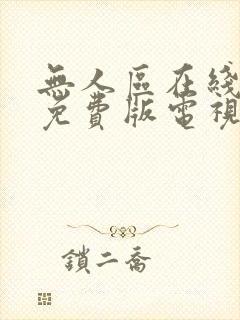 無人區在綫
免費版電視
鎖二喬